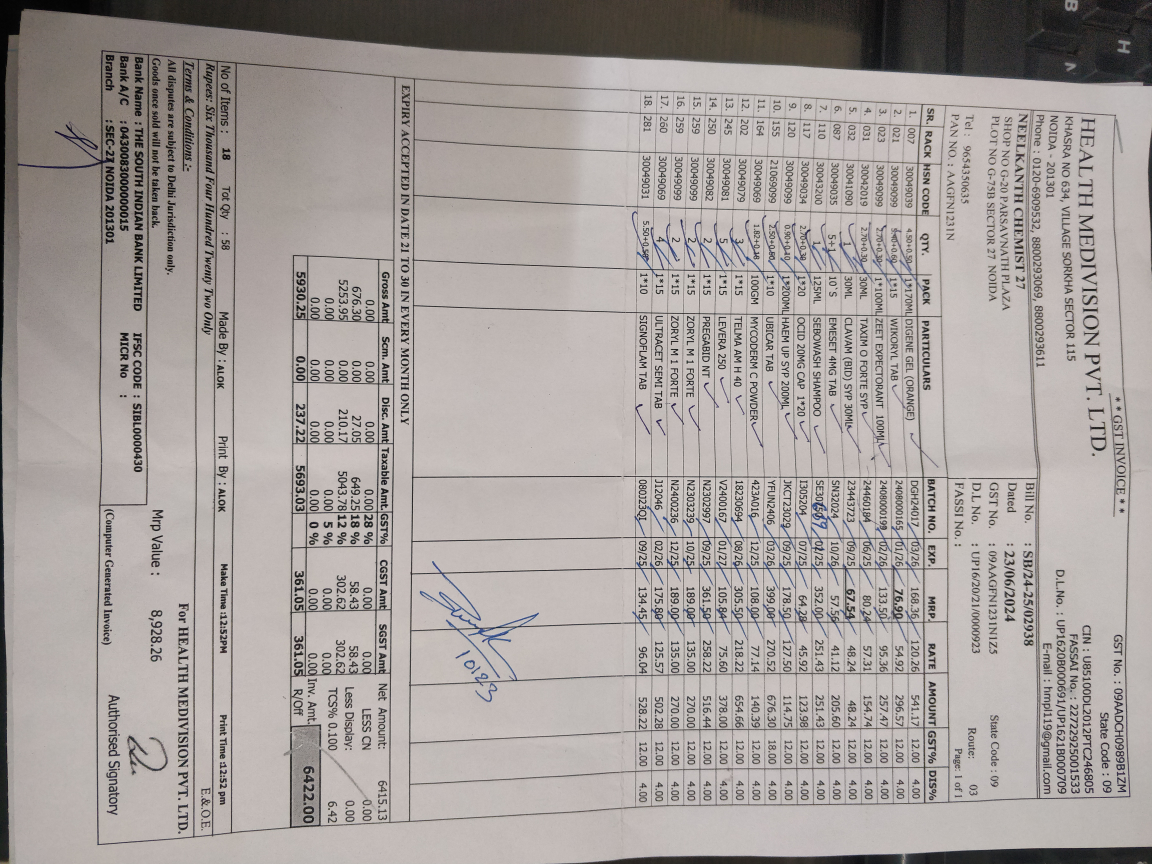 ** GST INVOICE **
HEALTH MEDIVISION PVT. LTD.
KHASRA NO 634, VILLAGE SORKHA SECTOR 115
NOIDA - 201301
Phone : 0120-6909532, 8800293069, 8800293611
GST No. : 09AADCH0989B1ZM
State Code : 09
CIN : U85100DL2012PTC246805
FASSAI No. : 22722925001533
D.L.No. : UP1620B000691/UP1621B000709
E-mail : hmpl119@gmail.com
NEELKANTH CHEMIST 27
SHOP NO G-20 PARSAVNATH PLAZA
PLOT NO G-75B SECTOR 27 NOIDA
Tel : 9654350635
PAN NO. : AAGFN1231N
Bill No. : SB/24-25/02938
Dated : 23/06/2024
GST No. : 09AAGFN1231N1Z5 State Code : 09
D.L No. : UP16/20/21/0000923 Route: 03
FASSI No. : Page: 1 of 1
SR. RACK HSN CODE QTY. PACK PARTICULARS BATCH NO. EXP. MRP. RATE AMOUNT GST% DIS%
1. 007 30049039 4.50+0.50 1*170ML DIGENE GEL (ORANGE) DGH24017 03/26 168.36 120.26 541.17 12.00 4.00
2. 021 30049099 5.40+0.60 1*15 WIKORYL TAB 2408000165 01/26 76.90 54.92 296.57 12.00 4.00
3. 023 30049099 2.70+0.30 1*100ML ZEET EXPECTORANT 100ML 2408000199 02/26 133.50 95.36 257.47 12.00 4.00
4. 031 30042019 2.70+0.30 30ML TAXIM O FORTE SYP 24460184 06/25 80.24 57.31 154.74 12.00 4.00
5. 032 30041090 1 30ML CLAVAM (BID) SYP 30ML 23443723 09/25 67.54 48.24 48.24 12.00 4.00
6. 087 30049035 5+1 10`S EMESET 4MG TAB SN32024 10/26 57.56 41.12 205.60 12.00 4.00
7. 110 30043200 1 125ML SEBOWASH SHAMPOO 02/25 352.00 251.43 251.43 12.00 4.00
8. 117 30049034 2.70+0.30 1*20 OCID 20MG CAP 1*20 I305204 07/25 64.28 45.92 123.98 12.00 4.00
9. 120 30049099 0.90+0.10 1*200ML HAEM UP SYP 200ML JKCT23029 09/25 178.50 127.50 114.75 12.00 4.00
10. 155 21069099 2.50+0.80 1*10 UBICAR TAB YFUN2406 03/26 399.00 270.52 676.30 18.00 4.00
11. 164 30049069 1.82+0.18 100GM MYCODERM C POWDER 423A016 12/25 108.00 77.14 140.39 12.00 4.00
12. 202 30049079 3 1*15 TELMA AM H 40 18230694 08/26 305.50 218.22 654.66 12.00 4.00
13. 245 30049081 5 1*15 LEVERA 250 V2400167 01/27 105.84 75.60 378.00 12.00 4.00
14. 250 30049082 2 1*15 PREGABID NT N2302997 09/25 361.50 258.22 516.44 12.00 4.00
15. 259 30049099 2 1*15 ZORYL M 1 FORTE N2303239 10/25 189.00 135.00 270.00 12.00 4.00
16. 259 30049099 2 1*15 ZORYL M 1 FORTE N2400236 12/25 189.00 135.00 270.00 12.00 4.00
17. 260 30049069 4 1*15 ULTRACET SEMI TAB J12046 02/26 175.80 125.57 502.28 12.00 4.00
18. 281 30049031 5.50+0.50 1*10 SIGNOFLAM TAB 09/25 134.45 96.04 528.22 12.00 4.00
10123
EXPIRY ACCEPTED IN DATE 21 TO 30 IN EVERY MONTH ONLY
Gross Amt Scm. Amt Disc. Amt Taxable Amt. GST% CGST Amt SGST Amt
0.00 0.00 0.00 0.00 28 % 0.00 0.00
676.30 0.00 27.05 649.25 18 % 58.43 58.43
5253.95 0.00 210.17 5043.78 12 % 302.62 302.62
0.00 0.00 0.00 0.00 5 % 0.00 0.00
0.00 0.00 0.00 0.00 0 % 0.00 0.00
5930.25 0.00 237.22 5693.03 361.05 361.05
Net Amount: 6415.13
LESS CN 0.00
Less Display: 0.00
TCS% 0.100 6.42
Inv. Amt. R/Off 6422.00
No of Items : 18 Tot Qty : 58 Made By : ALOK Print By : ALOK Make Time :12:52PM Print Time :12:52 pm
Rupees: Six Thousand Four Hundred Twenty Two Only E.& O.E.
Terms & Conditions :-
All disputes are subject to Delhi Jurisdiction only.
Goods once sold will not be taken back.
Bank Name : THE SOUTH INDIAN BANK LIMITED IFSC CODE : SIBL0000430
Bank A/C : 0430083000000015 MICR No :
Branch : SEC-27 NOIDA 201301
Mrp Value : 8,928.26
For HEALTH MEDIVISION PVT. LTD.
(Computer Generated Invoice)
Authorised Signatory